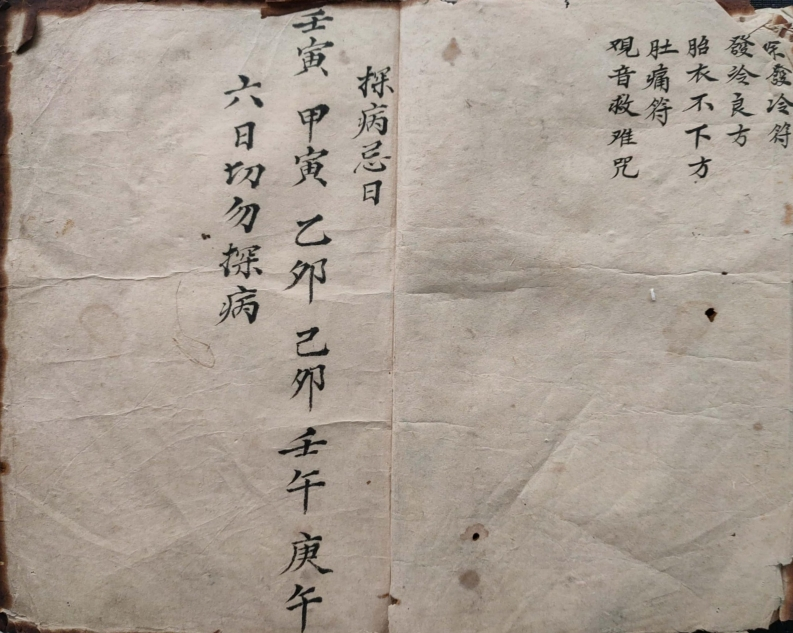 发冷符
發冷良方
胎衣不下方
肚痛符
观音救难咒
探病忌日
壬寅 甲寅 乙卯 己卯 壬午 庚午
六日切勿探病